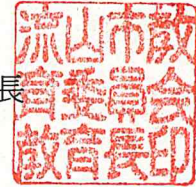 長
流山市教
育委員会
教育長印